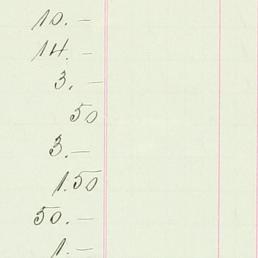 10.—
14.—
3.—
50
3.—
1.50
50.—
1.—